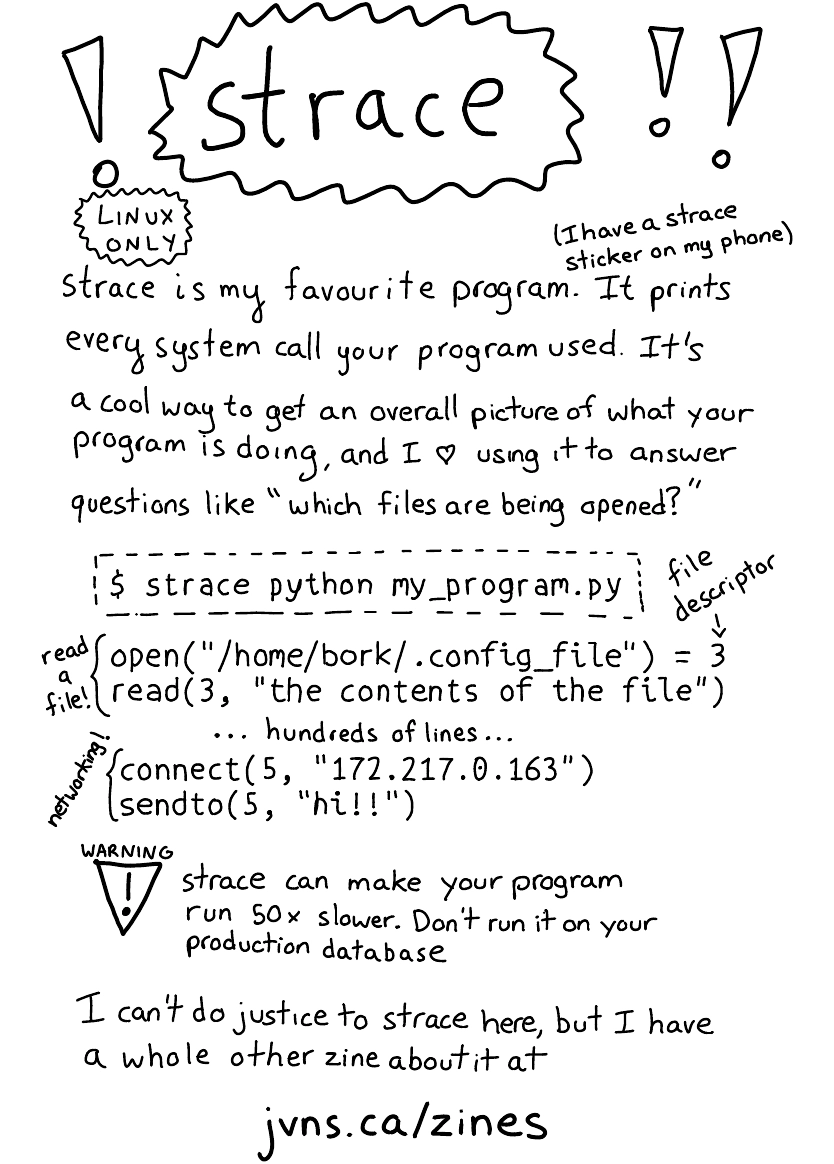 ! strace !!
LINUX
ONLY
(I have a strace
sticker on my phone)
strace is my favourite program. It prints
every system call your program used. It's
a cool way to get an overall picture of what your
program is doing, and I ♡ using it to answer
questions like "which files are being opened?"
$ strace python my_program.py
file
descriptor
read
a
file!
open("/home/bork/.config_file") = 3
read(3, "the contents of the file")
... hundreds of lines...
networking!
connect(5, "172.217.0.163")
sendto(5, "hi!!")
WARNING
!
strace can make your program
run 50x slower. Don't run it on your
production database
I can't do justice to strace here, but I have
a whole other zine about it at
jvns.ca/zines